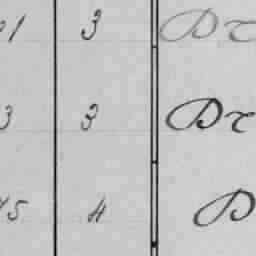 1 3 Dr
3 3 Dr
45 4 D